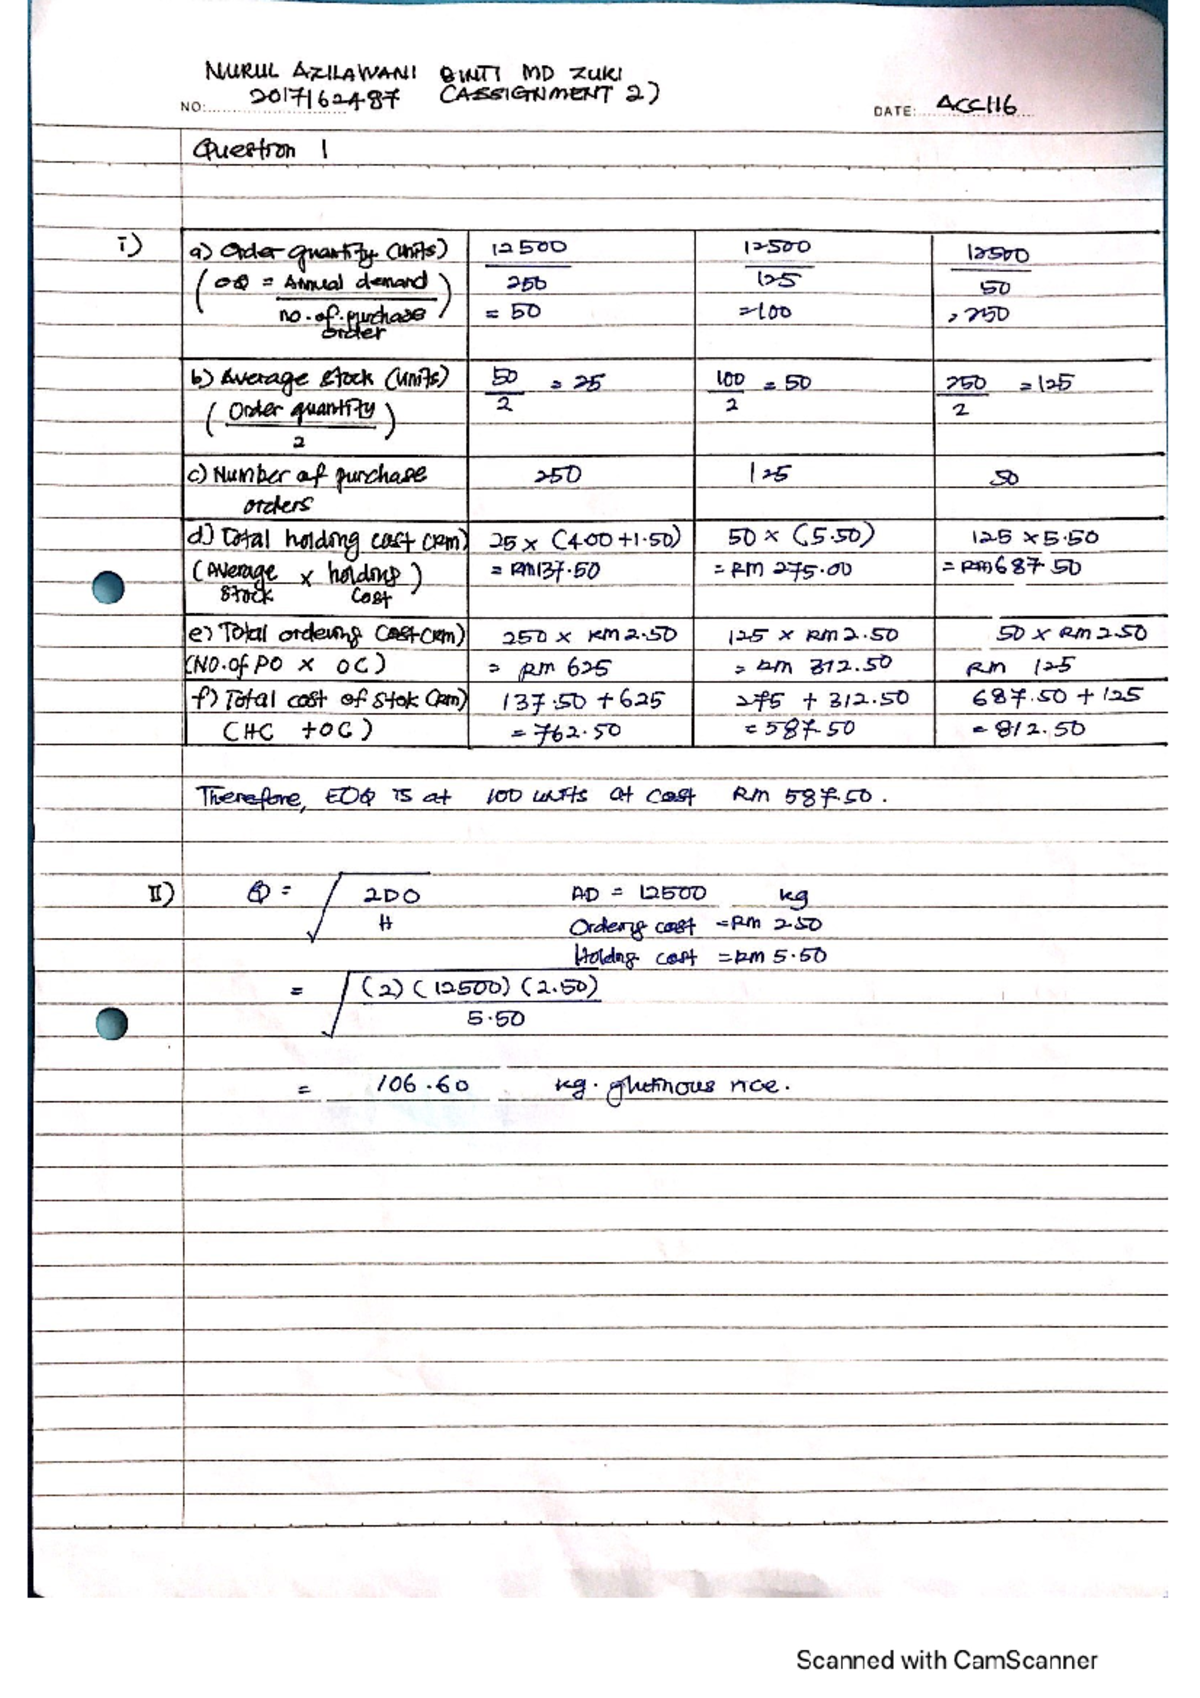 NURUL AZILAWANI BINTI MD ZUKI
NO: 2017162487 (ASSIGNMENT 2) DATE: ACC116
Question 1
i) a) Order quantity (units) 12500 12500 12500
(OQ = Annual demand 250 125 50
no. of. purchase order) = 50 =100 = 250
b) Average stock (units) 50/2 = 25 100/2 = 50 250/2 = 125
(Order quantity / 2)
c) Number of purchase 250 125 50
orders
d) Total holding cost (RM) 25 x (4.00 +1.50) 50 x (5.50) 125 x 5.50
(Average stock x holding cost) = RM137.50 = RM 275.00 = RM687.50
e) Total ordering cost (RM) 250 x RM2.50 125 x RM2.50 50 x RM2.50
(NO. of PO x OC) = RM 625 = RM 312.50 RM 125
f) Total cost of stok (RM) 137.50 + 625 275 + 312.50 687.50 + 125
(HC + OC) = 762.50 = 587.50 = 812.50
Therefore, EOQ is at 100 units at cost RM 587.50.
II) Q = √ 2DO AD = 12500 kg
H Ordering cost = RM 2.50
Holdng cost = RM 5.50
= √ (2) (12500) (2.50)
5.50
= 106.60 kg. glutinous rice.
Scanned with CamScanner